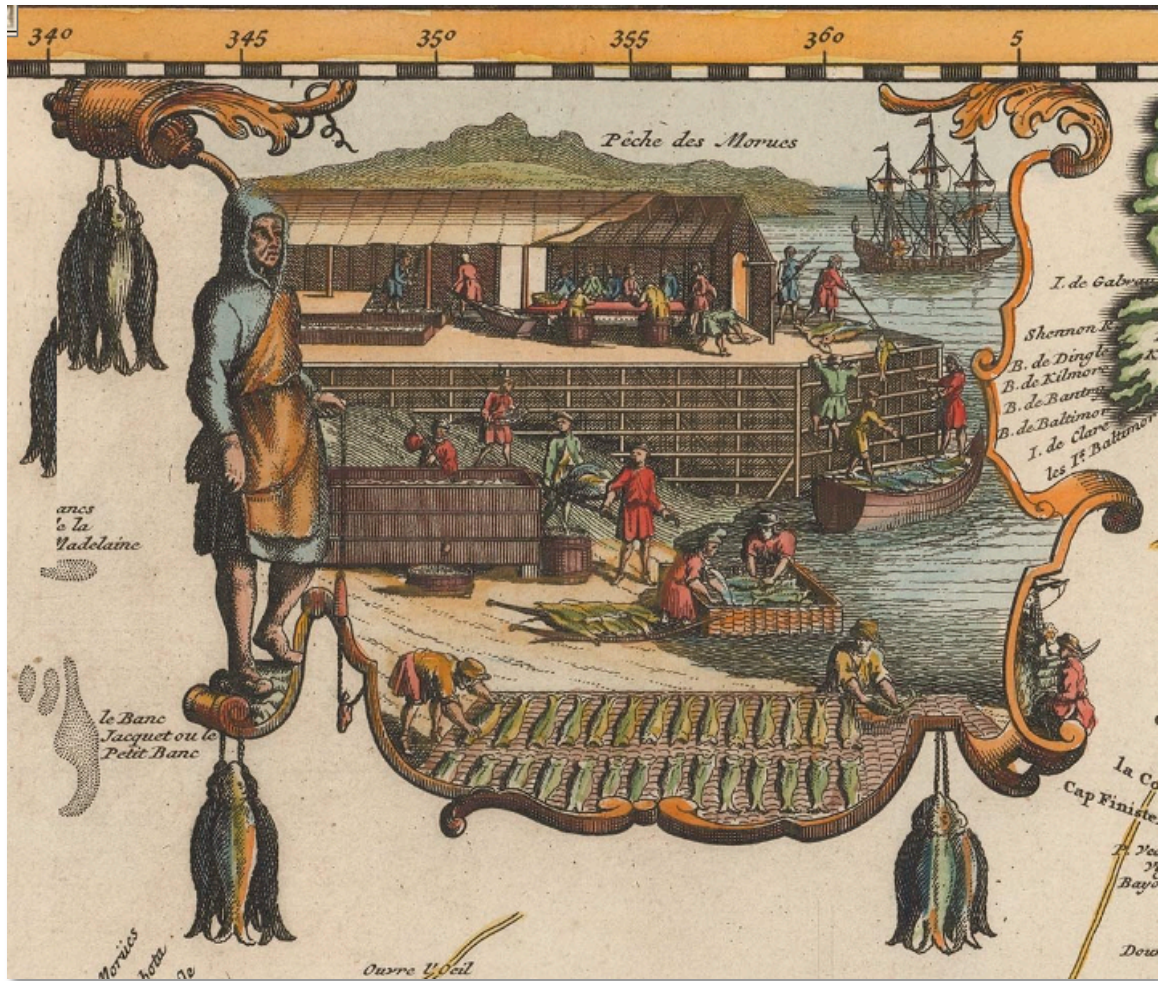 340 345 350 355 360 5
Pêche des Morues
I. de Galway
Shennon R.
B. de Dingle
B. de Kilmore
B. de Bantry
B. de Baltimor
I. de Clare
les I.ˢ Baltimor
ancs
de la
Madelaine
le Banc
Jacquet ou le
Petit Banc
la Co
Cap Finister
P. Vec
Bayo
Dou
Moruës
bota
de
Ouvre l'Oeil